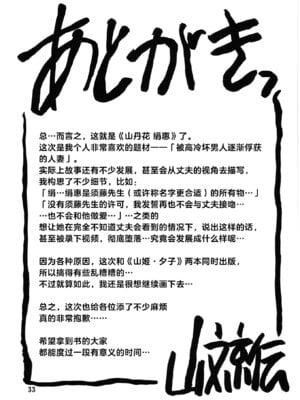 あとがきっ
总…而言之，这就是《山丹花 绢惠》了。
这次是我个人非常喜欢的题材——「被高冷坏男人逐渐俘获
的人妻」。
实际上故事还有不少发展，甚至会从丈夫的视角去描写，
我构思了不少细节，比如：
「绢…绢惠是须藤先生的（或许称名字更合适）的所有物…」
「没有须藤先生的许可，我发誓再也不会与丈夫接吻…
…也不会和他做爱…」…之类的
想让她在完全不知道丈夫会看到的情况下，说出这样的话，
甚至被录下视频，彻底堕落…究竟会发展成什么样呢…
因为各种原因，这次和《山姬·夕子》两本同时出版，
所以搞得有些乱糟糟的…
不过就算如此，我还是很想继续画下去…
总之，这次也给各位添了不少麻烦
真的非常抱歉……
希望拿到书的大家
都能度过一段有意义的时间…
山文京伝
33